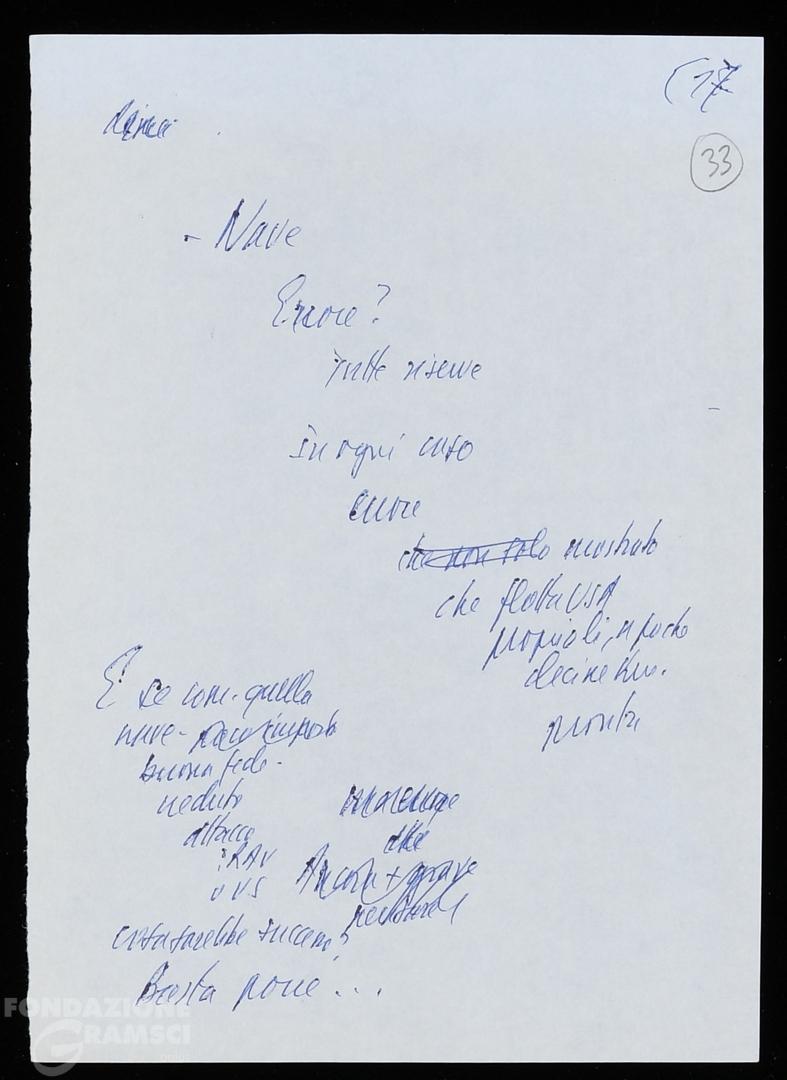 (17
33
- Nave
Errore?
Tutte riserve
In ogni caso
errore
che non solo mostrato
che flotta USA
a poche
decine Km.
pronta
E se com. quella
nave -
buona fede -
veduto
attacco
RAV
o VS
Ancora + grave
cosa sarebbe successo?
Basta porre ...
FONDAZIONE
GRAMSCI